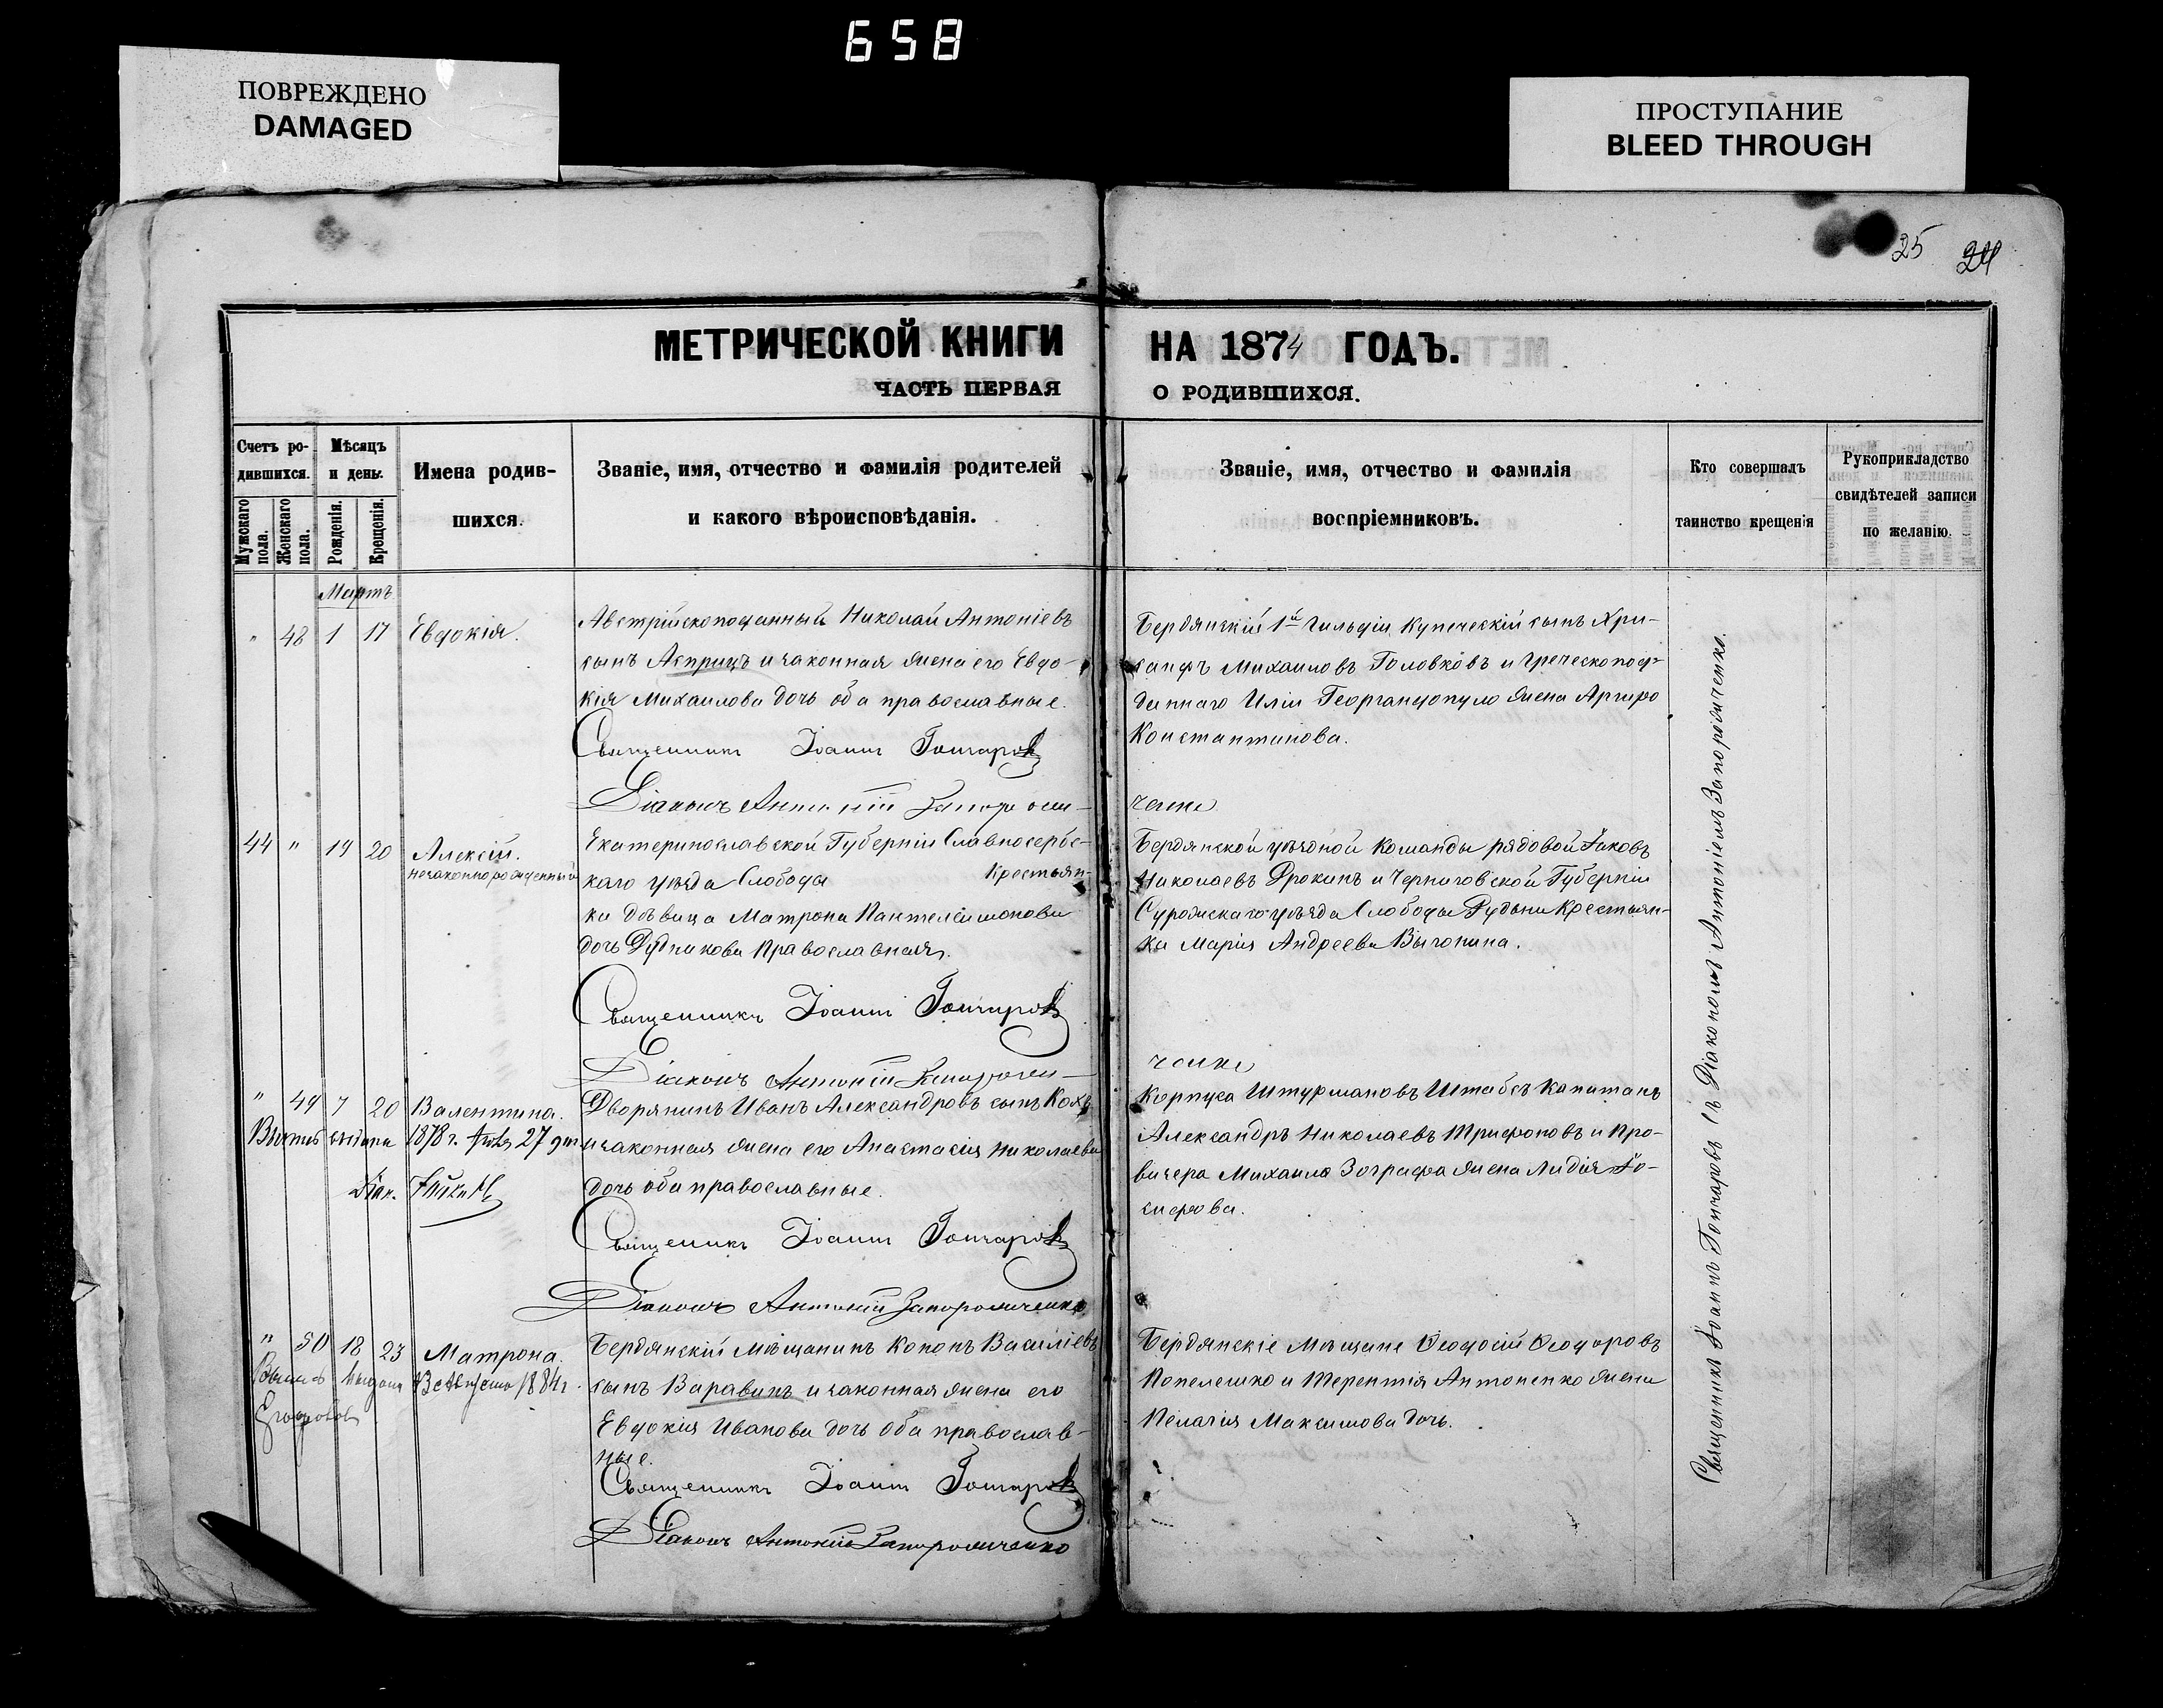 658
ПОВРЕЖДЕНО
DAMAGED
ПРОСТУПАНИЕ
BLEED THROUGH
25 24
МЕТРИЧЕСКОЙ КНИГИ НА 1874 ГОДЪ.
ЧАСТЬ ПЕРВАЯ О РОДИВШИХСЯ.
Счетъ ро-
дившихся.
Мужскаго пола.
Женскаго пола.
Мѣсяцъ
и день.
Рожденія.
Крещенія.
Имена родив-
шихся.
Званіе, имя, отчество и фамилія родителей
и какого вѣроисповѣданія.
Званіе, имя, отчество и фамилія
воспріемниковъ.
Кто совершалъ
таинство крещенія
Рукоприкладство
свидѣтелей записи
по желанію.
Мартъ
" 48 1 17 Евдокія.
Австрійскоподанный Николай Антоніевъ
сынъ Асприцъ и законная жена его Евдо-
кія Михаилова дочь оба православные.
Священникъ Іоаннъ Гончаровъ
Діаконъ Антоній Запорожи-
ченко
Бердянскій 1й Гильдіи Купеческій сынъ Хри-
санфъ Михаиловъ Головковъ и Греческопод-
даннаго Иліи жена Аргиро
Константинова.
44 " 19 20 Алексій.
незаконнорожденный
Екатеринославской Губерніи Славяносербс-
каго уѣзда Слобода Крестьян-
ка дѣвица Матрона Пантелеимонова
дочь Дудникова Православная.
Священникъ Іоаннъ Гончаровъ
Діаконъ Антоній Запорожи-
ченко
Бердянской уѣздной Команды рядовой Іаковъ
Николаевъ Дрокинъ и Черниговской Губерніи
Суражскаго уѣзда Слободы Рудни Крестьян-
ка Марія Андреева
" 49 7 20 Валентина.
Выпись выдана 1878 г. 27 дня
Діак.
Дворянинъ Иванъ Александровъ сынъ Кохъ
и законная жена его Анастасія Николаева
дочь оба православные.
Священникъ Іоаннъ Гончаровъ
Діаконъ Антоній Запорожиченко
Корпуса Штурмановъ Штабсъ Капитанъ
Александръ Николаевъ Трифоновъ и Про-
визера Михаила Зографа жена Лидія Іо-
сифова.
" 50 18 23 Матрона.
Выпись выдана Августа 1884 г.
Бердянскій Мѣщанинъ Кононъ Василіевъ
сынъ Варавинъ и законная жена его
Евдокія Иванова дочь оба православ-
ные.
Священникъ Іоаннъ Гончаровъ
Діаконъ Антоній Запорожиченко
Бердянскіе Мѣщане Ѳеодосій Ѳеодоровъ
Попелешко и Терентія Антоненко жена
Пелагія Максимова дочь.
Священникъ Іоаннъ Гончаровъ съ Діакономъ Антоніемъ Запорожиченко.